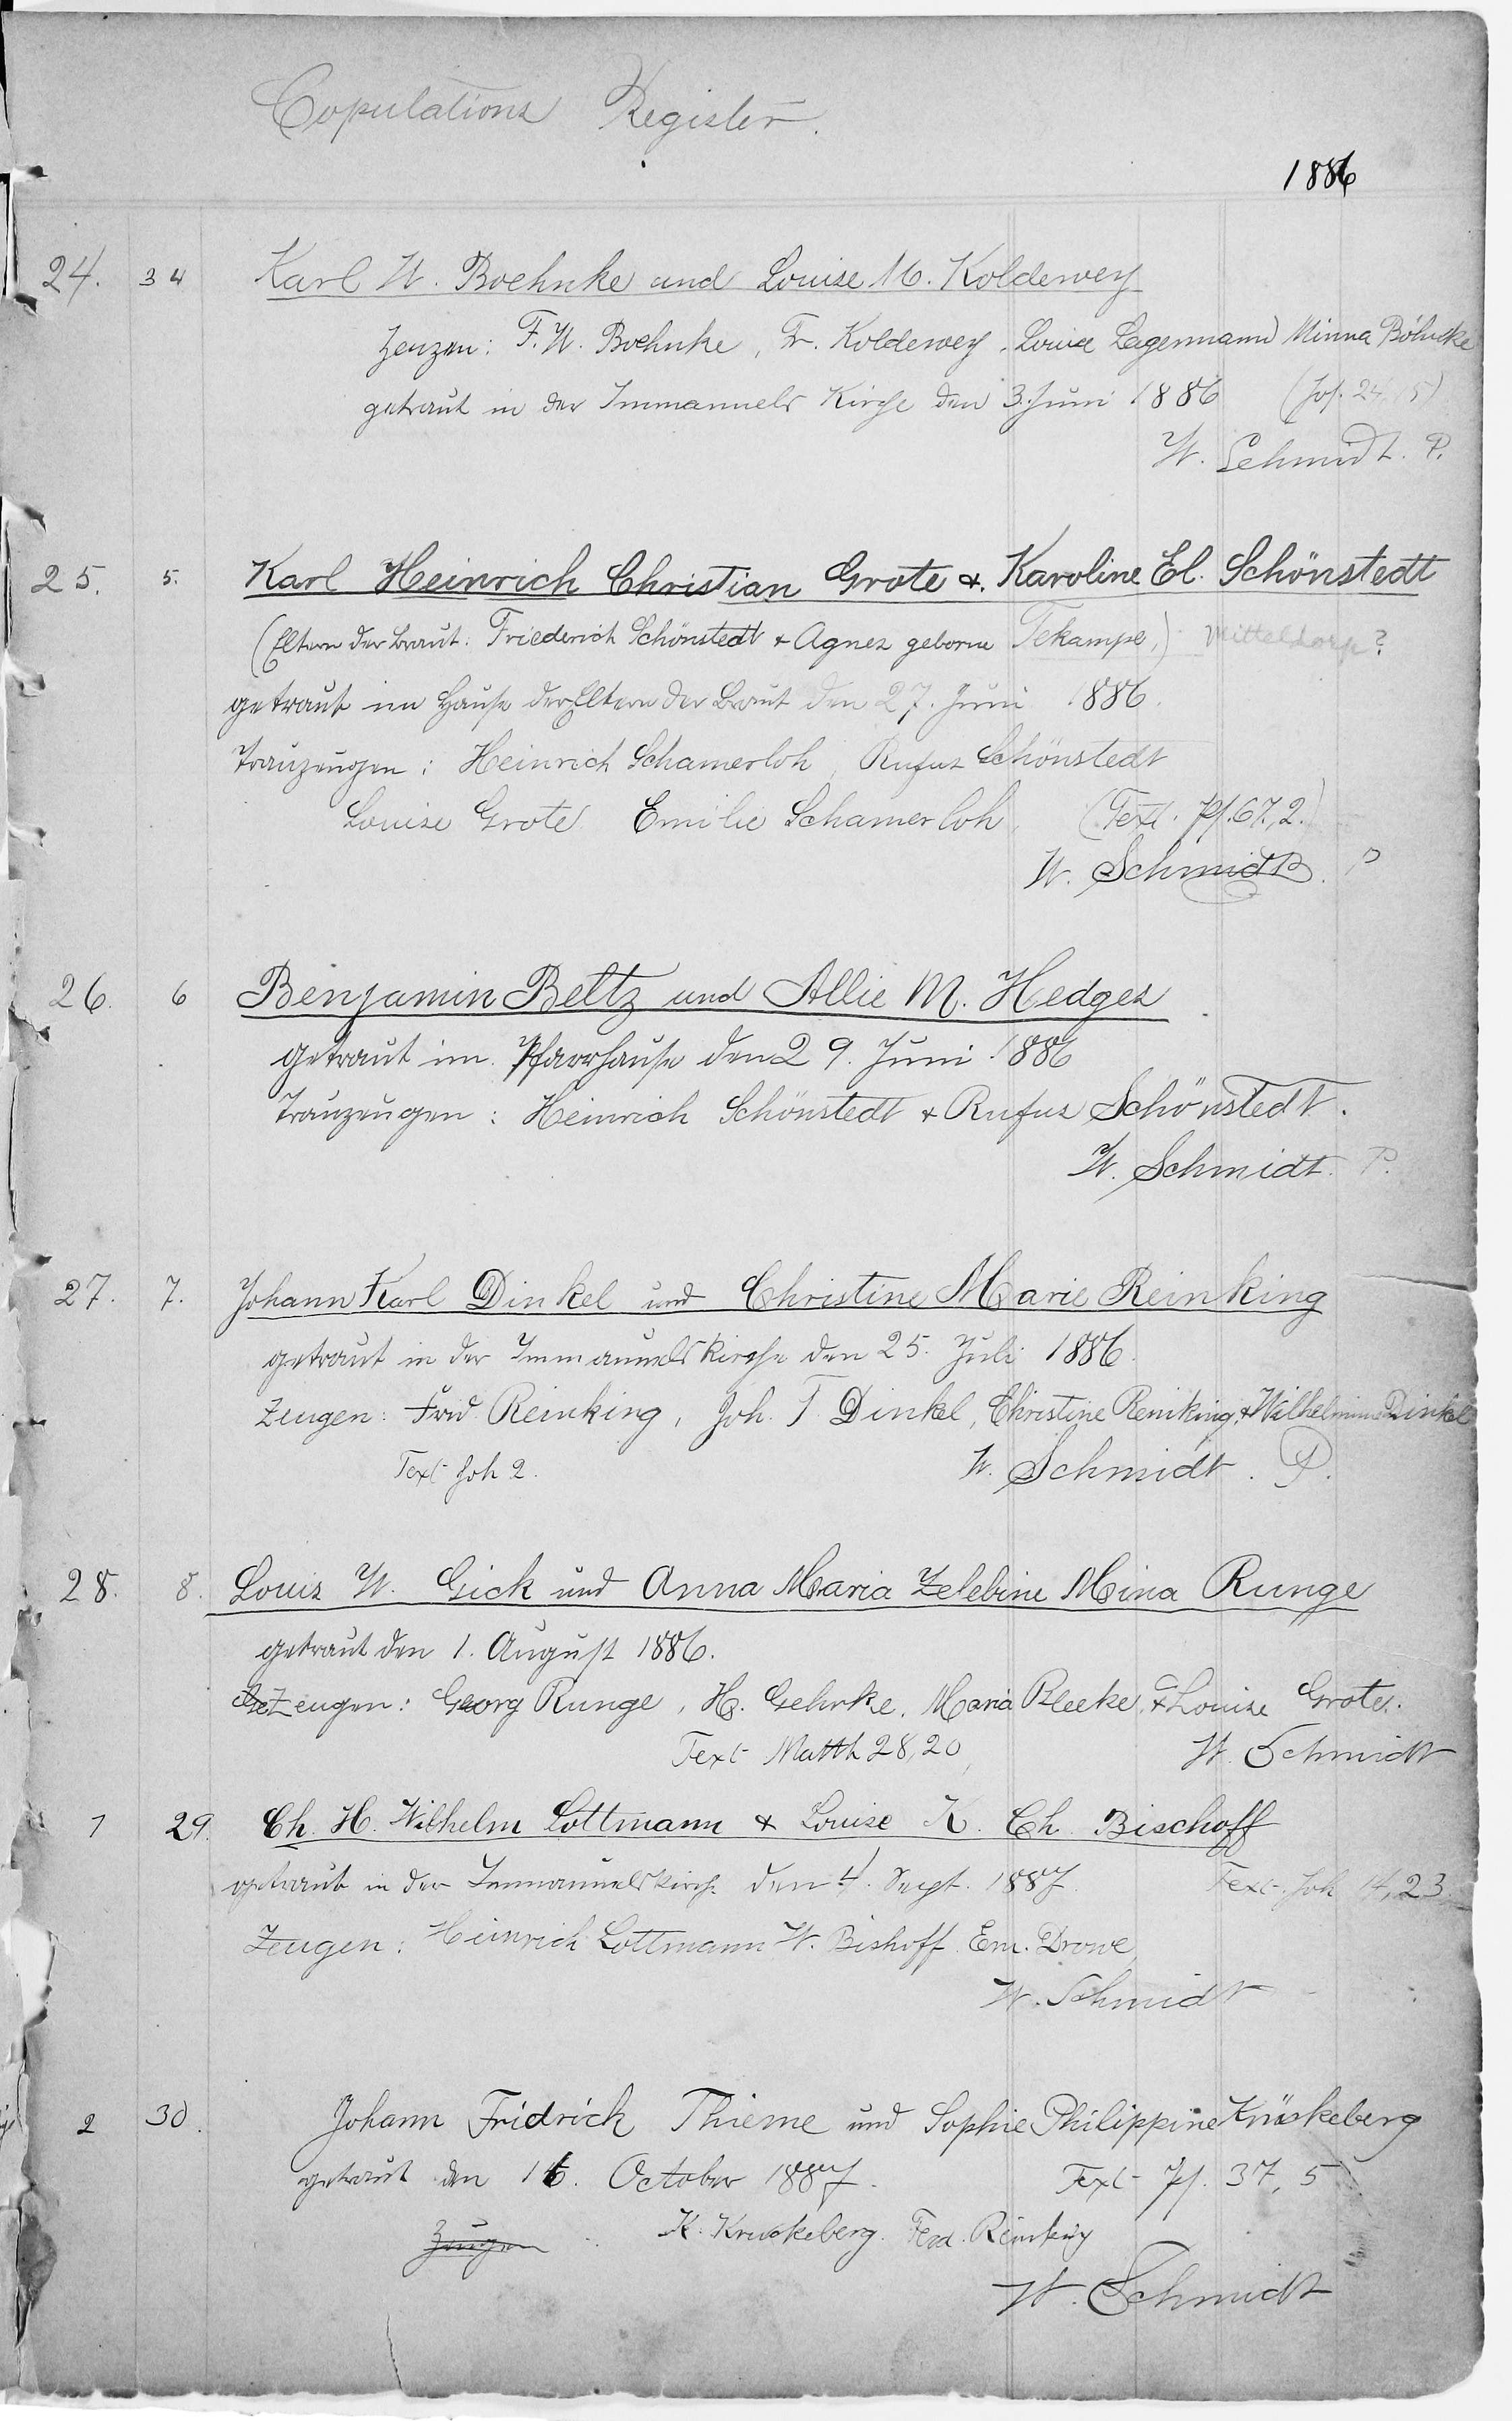 Copulations Register.
1886
24. 34 Karl W. Boehnke und Louise M. Koldewey
Zeugen: F. W. Boehnke, Fr. Koldewey, Louise Lagermann Minna Böhnke
getraut in der Immanuels Kirche den 3. Juni 1886 (Jos. 24, 15)
W. Schmidt. P.
25. 5. Karl Heinrich Christian Grote &. Karoline El. Schönstedt
(Eltern der Braut: Friederich Schönstedt & Agnes geborne Tekampe,) Mitteldorp?
getraut im Hause der Eltern der Braut den 27. Juni 1886.
Trauzeugen: Heinrich Schamerloh, Rufus Schönstedt
Louise Grote Emilie Schamerloh, (Text. Ps. 67, 2.)
W. Schmidt. P
26. 6 Benjamin Beltz und Allie M. Hedges
getraut im Pfarrhause den 29. Juni 1886
Trauzeugen: Heinrich Schönstedt & Rufus Schönstedt.
W. Schmidt. P.
27. 7. Johann Karl Dinkel und Christine Marie Reinking
getraut in der Immanuelskirche den 25. Juli 1886.
Zeugen: Frd. Reinking, Joh. F. Dinkel, Christine Reinking, & Wilhelmine Dinkel
Text Joh 2. W. Schmidt. P.
28. 8. Louis W. Gick und Anna Maria Zelebine Mina Runge
getraut den 1. August 1886.
Zeugen: Georg Runge, H. Gehrke, Maria Bleeke, & Louise Grote.
Text Matth 28, 20, W. Schmidt
1 29. Ch. H. Wilhelm Lottmann & Louise K. Ch. Bischoff
getraut in der Immanuelskirche den 4. Sept. 1887. Text. Joh 14, 23.
Zeugen: Heinrich Lottmann W. Bishoff Em. Drowe,
W. Schmidt
2 30. Johann Fridrich Thieme und Sophie Philippine Krückeberg
getraut den 16. October 1887. Text Ps. 37, 5
Zeugen K. Kruckeberg. Ferd. Reinking
W. Schmidt